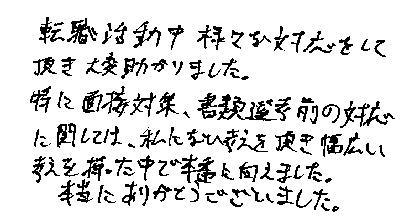 転職活動中 様々な対応をして
頂き大変助かりました。
特に面接対策、書類選考前の対応
に関しては、私にない考えを頂き幅広い
考えを持った中で本番に向えました。
本当にありがとうございました。